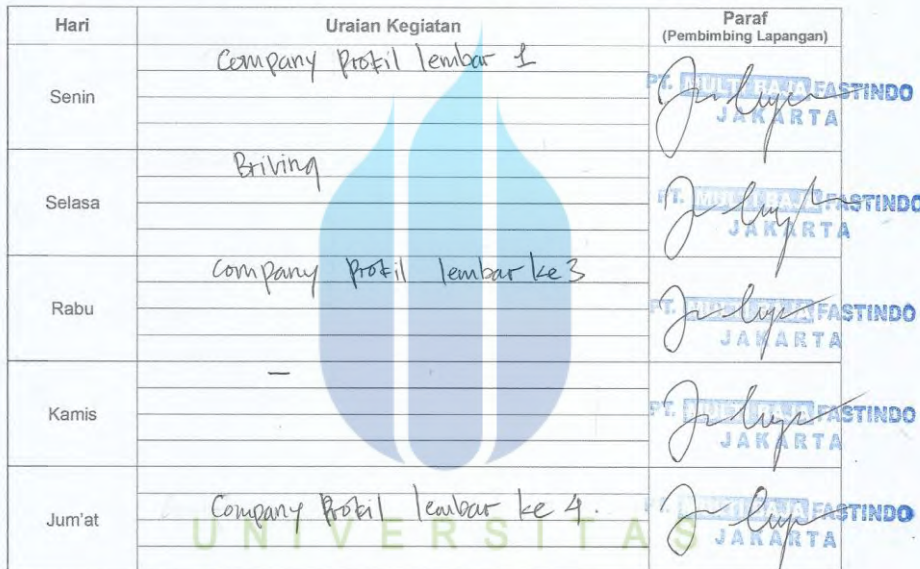 Hari Uraian Kegiatan Paraf
(Pembimbing Lapangan)
Senin Company Profil lembar 1
PT. MULTI BAJA FASTINDO
JAKARTA
Selasa Briving
PT. MULTI BAJA FASTINDO
JAKARTA
Rabu Company Profil lembar ke 3
PT. MULTI BAJA FASTINDO
JAKARTA
Kamis –
PT. MULTI BAJA FASTINDO
JAKARTA
Jum'at Company Profil lembar ke 4.
PT. MULTI BAJA FASTINDO
JAKARTA
UNIVERSITAS